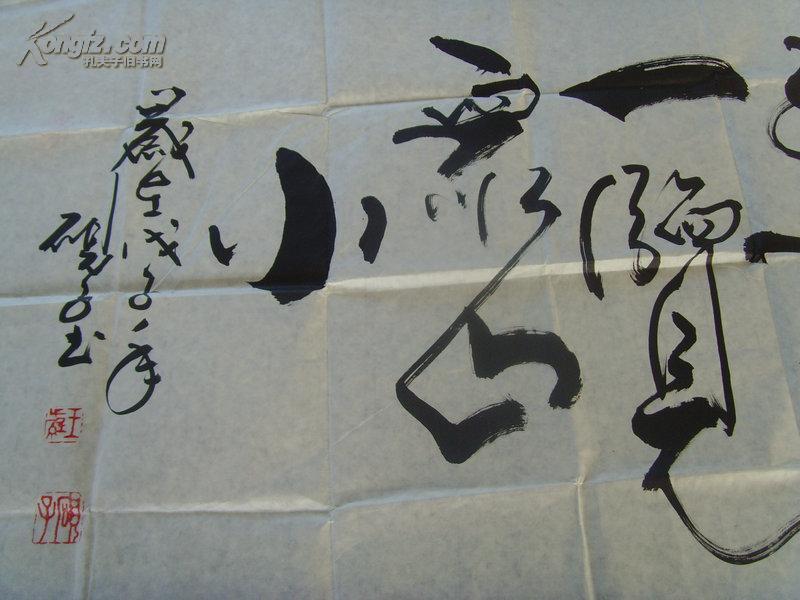 Kongfz.com
孔夫子旧书网
一覽
衆山
小
歲在戊子年
子书